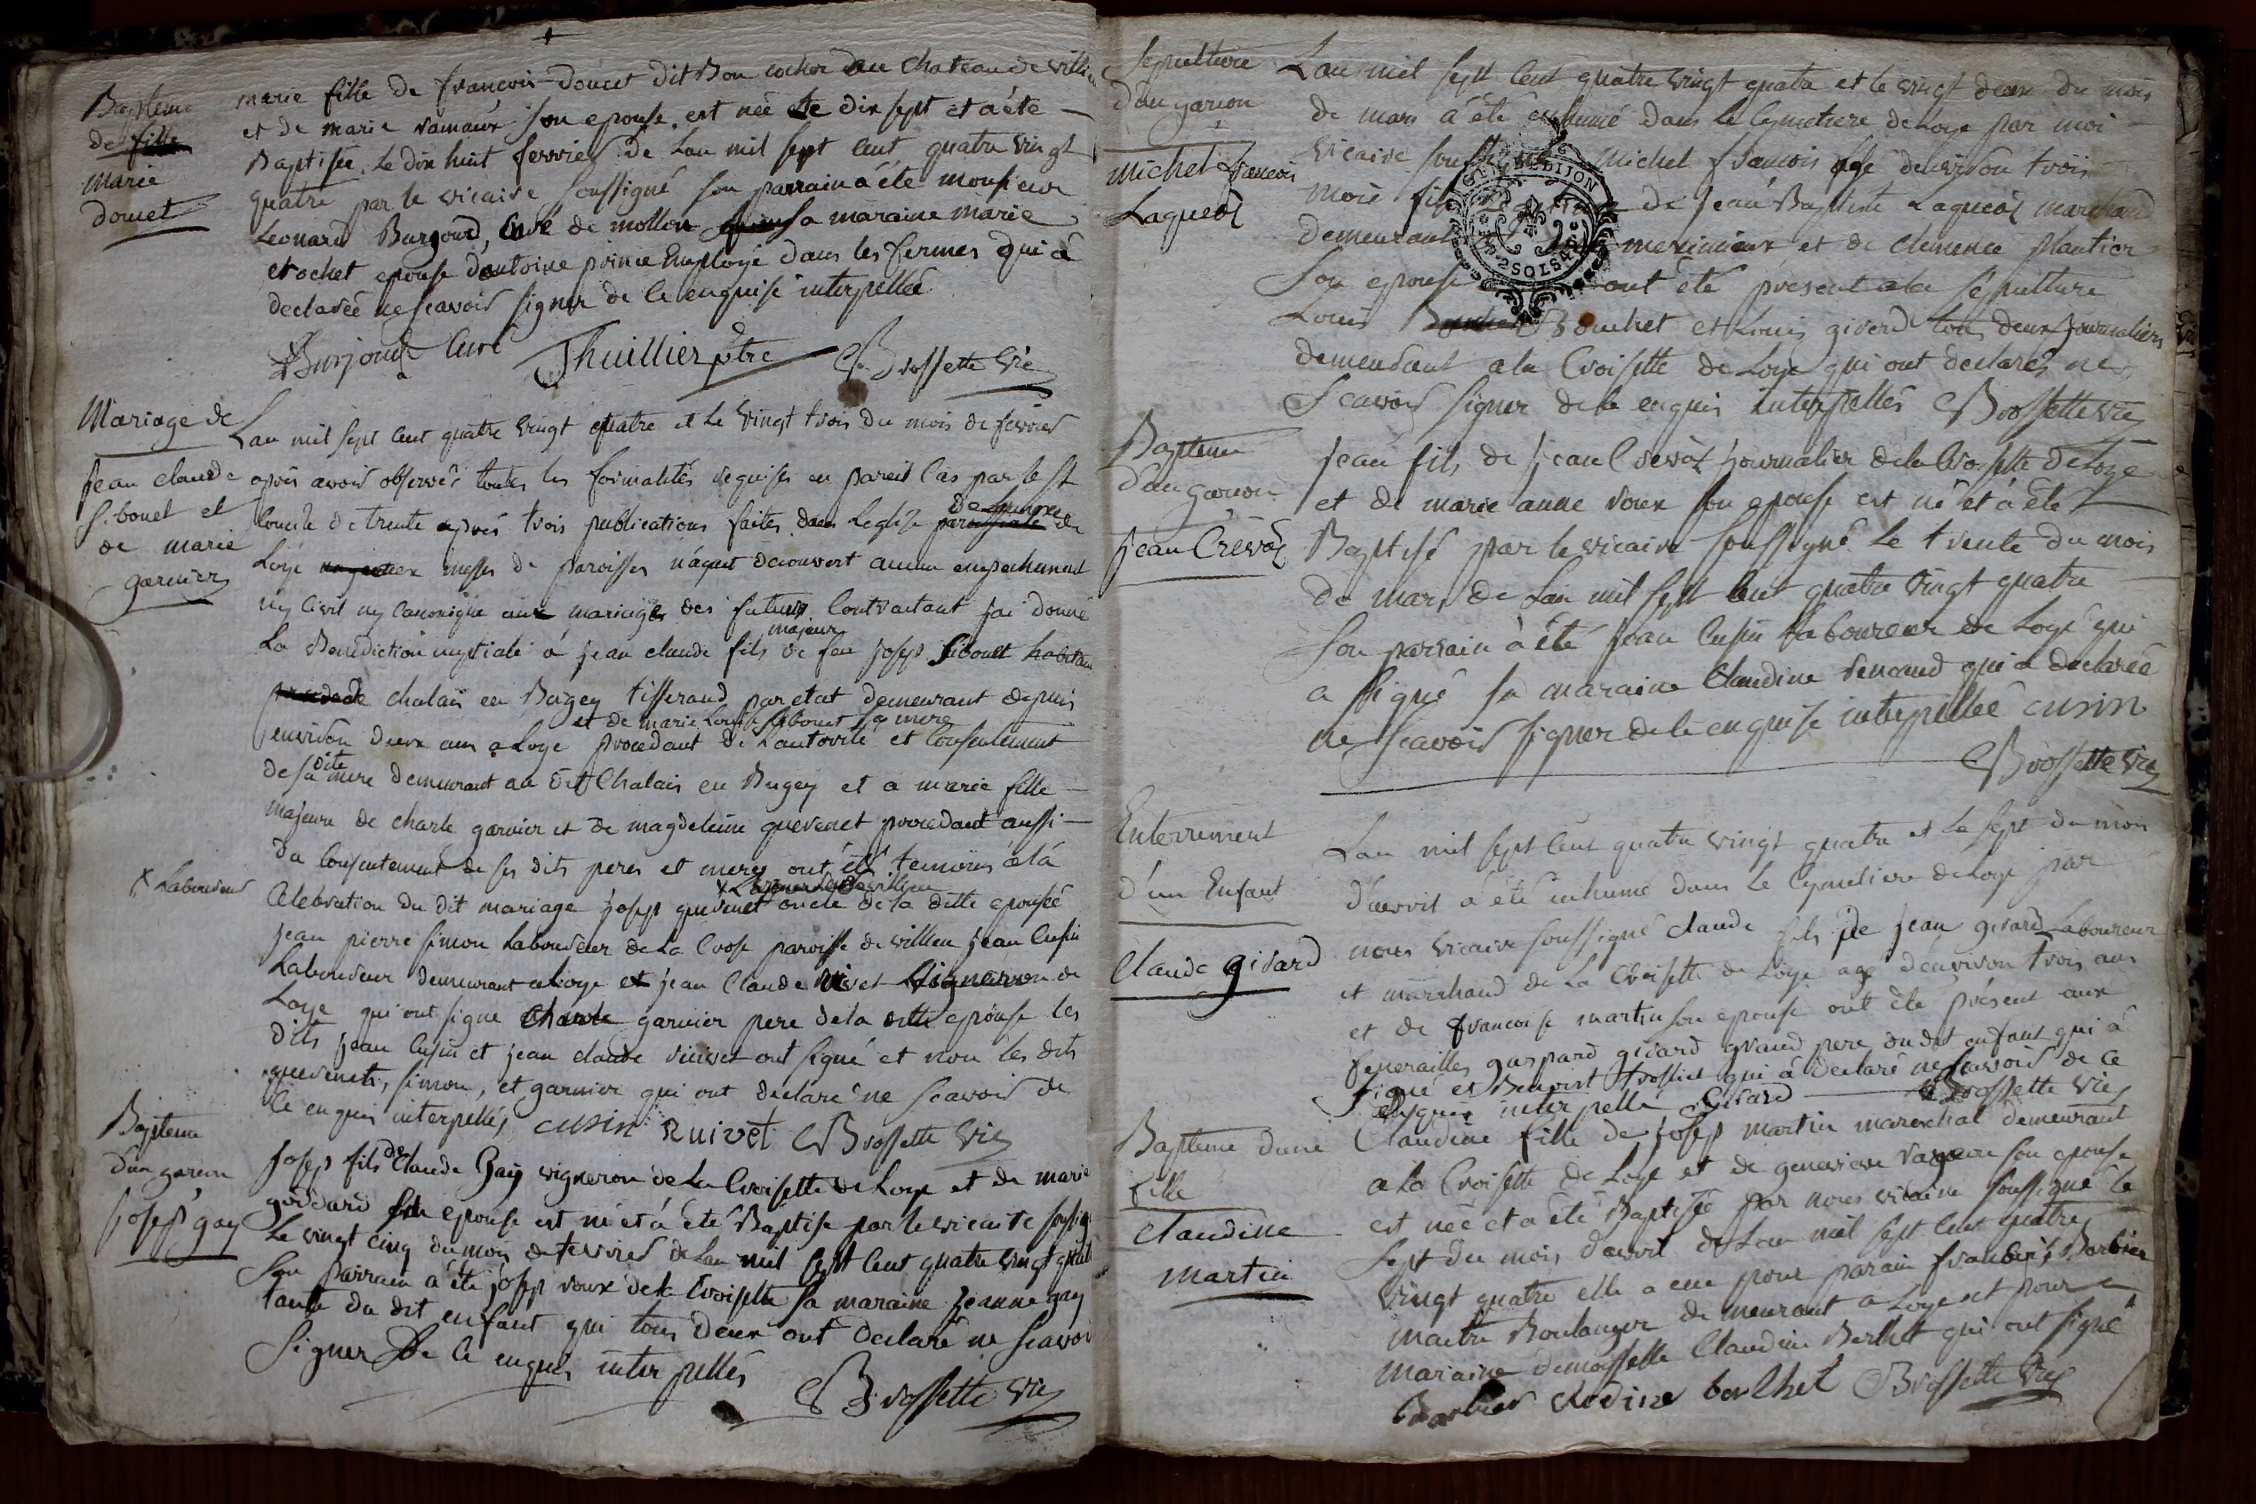 Bapteme
de fille
Marie
doucet
marie fille de francois doucet dit Bon cocher au chateau de villieu
et de marie ramaux son epouse est née le dix sept et a été
Baptisée le dix huit fevrier de Lan mil sept cent quatre vingt
quatre par le vicaire soussigné son parrain a été monsieur
Leonard Burjoud, Curé de mollon sa maraine marie
crochet epouse dantoine prince Employé dans les fermes qui a
declarée ne scavoir signer de ce enquise interpellée
Burjoud Curé Thuillier ptre Brossette vic
Mariage de
jean claude
sibouet et
de marie
garnier
Lan mil sept cent quatre vingt quatre et le vingt trois du mois de fevrier
après avoir observés toutes les formalités requises en pareil cas par le st
concile de trente après trois publications faites dans Leglise paroissiale de
Loye messes de paroisses nayant decouvert aucun empechement
ny civil ny canonique aux mariage des futurs contractant jai donné
La Benediction nuptiale a jean claude fils majeur de feu josep sibouet habitant
chalais en Bugey tisserand par etat demeurant depuis
environ deux ans a Loye et de marie Louise sibouet sa mere procedant de Lautorité et consentement
de sa dite mere demeurant au dit Chalais en Bugey et a marie fille
majeure de charle garnier et de magdeleine quevenet procedant aussi
du consentement de ses dits peres et meres ont été temoins a la
* Laboureur
Celebration du dit mariage josep quevenet oncle de la ditte epousée
jean pierre simon Laboureur de la Cróse paroisse de villieu jean Cusin
Laboureur demeurant a Loye et jean Claude vivet vigneron de
Loye qui ont signé Charle garnier pere de la ditte epouse les
dits jean Cusin et jean claude ruivet ont signé et non les dits
quevenets, simon, et garnier qui ont declaré ne scavoir de
ce enquis interpellés cusin Ruivet Brossette vic
Bapteme
d'un garcon
josep gay
josep fils de Claude Gay vigneron de La Croisette de Loye et de marie
goddard son epouse est né et a été Baptise par le vicaire soussigné
Le vingt cinq du mois de fevrier de Lan mil sept cent quatre vingt quatre
son parrain a été josep roux de la Croisette sa maraine jeanne gay
tante du dit enfant qui tous deux ont declaré ne scavoir
signer de ce enquis interpellés
Brossette vic
Sepulture
d'un garcon
michel francois
Laqueol
Lan mil sept cent quatre vingt quatre et le vingt deux du mois
de mars a été enhumé dans le Cymetiere de Loye par moi
vicaire michel francois age denviron trois
mois fils de jean Baptiste Laqueol marchand
demeurant meximieux et de Clemence plantier
son epouse ont été present a la sepulture
Louis Bouchet et Louis girerd tous deux journaliers
demeurant a la Croisette de Loye qui ont declarés ne
scavoir signer de ce enquis interpellés Brossette vic
Bapteme
d'un garcon
jean Crevat
jean fils de jean Crevat journalier de la Croisette de Loye
et de marie anne roux son epouse est né et a été
Baptisé par le vicaire soussigné le trente du mois
de mars de Lan mil sept cent quatre vingt quatre
son parrain a été jean Cusin laboureur de Loye qui
a signé sa maraine Claudine renaud qui a declarée
ne scavoir signer de ce enquise interpellée cusin
Brossette vic
Enterrement
d'un Enfant
Claude girard
Lan mil sept cent quatre vingt quatre et le sept du mois
d'avril a été enhumé dans le Cymetiere de Loye par
nous vicaire soussigné claude fils de jean girard Laboureur
et marchand de La Croisette de Loye age d'environ trois ans
et de francoise martin son epouse ont été présent aux
funerailles gaspard girard grand pere du dit enfant qui a
signé et Benoist trosliet qui a declaré ne scavoir de ce
enquis interpellé girard Brossette vic
Bapteme dune
fille
claudine
martin
Claudine fille de josep martin marechal demeurant
a La Croisette de Loye et de genevieve son epouse
est née et a été Baptisée par nous vicaire soussigné le
sept du mois d'avril de Lan mil sept cent quatre
vingt quatre elle a eue pour parain francois Barbier
maitre Boulanger demeurant a Loye et pour
maraine demoiselle Claudine Berthet qui ont signé
Barbier clodine berthet Brossette vic